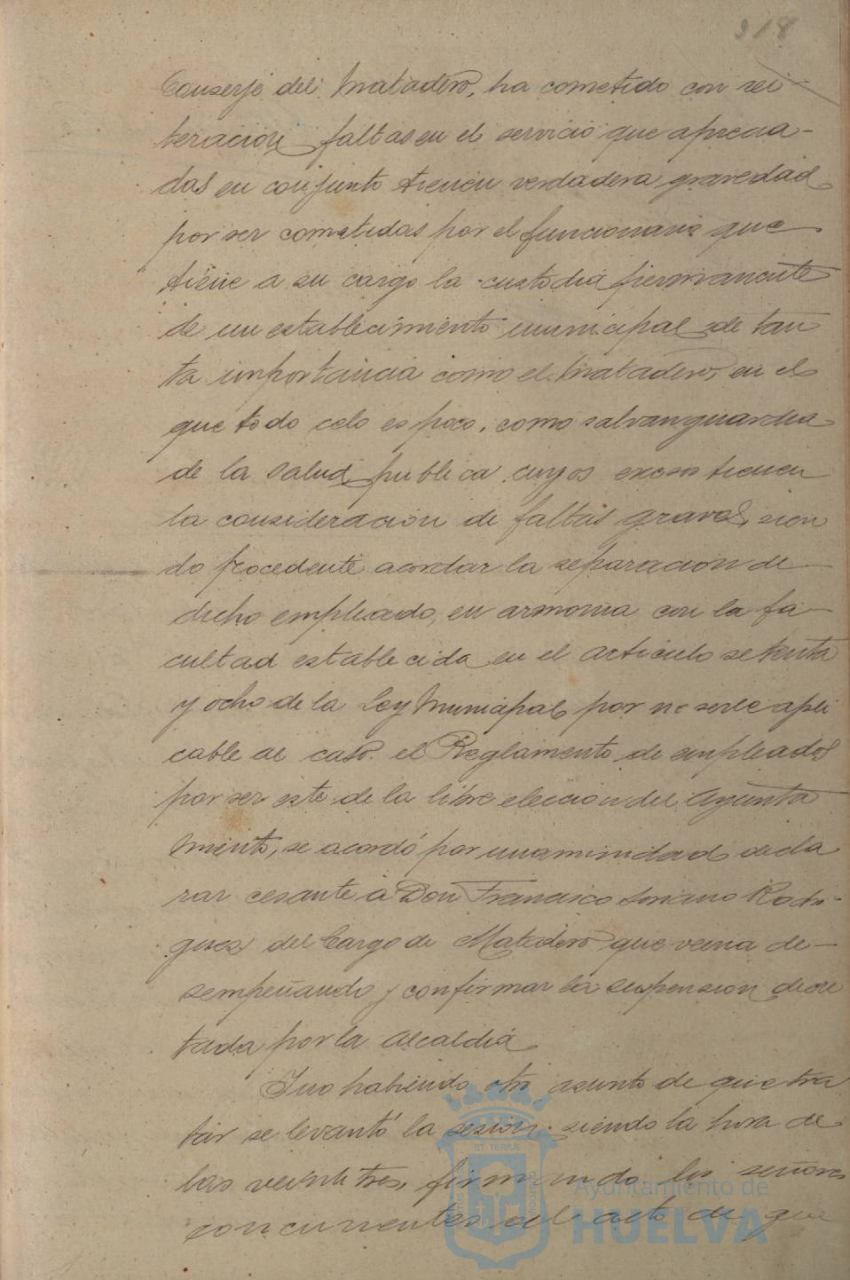 318
Conserje del Matadero, ha cometido con rei-
teración faltas en el servicio que aprecia-
das en conjunto tienen verdadera gravedad
por ser cometidas por el funcionario que
tiene a su cargo la custodia permanente
de un establecimiento municipal de tan
ta importancia como el Matadero, en el
que todo celo es poco, como salvanguardia
de la salud publica cuyos excesos tienen
la consideracion de faltas graves, sien
do procedente acordar la separacion de
dicho empleado, en armonia con la fa-
cultad establecida en el articulo setenta
y ocho de la Ley Municipal, por no serle apli
cable al caso el Reglamento de empleados
por ser este de la libre eleccion del Ayunta
miento, se acordó por unanimidad decla
rar cesante á Don Francisco Soriano Rodri-
guez del Cargo de Matadero que venia de-
sempeñando y confirmar la suspension decre
tada por la Alcaldia
Y no habiendo otro asunto de que tra
tar se levantó la sesion siendo la hora de
las veintitres, firmando los señores
concurrentes al acto de que
Ayuntamiento de
HUELVA